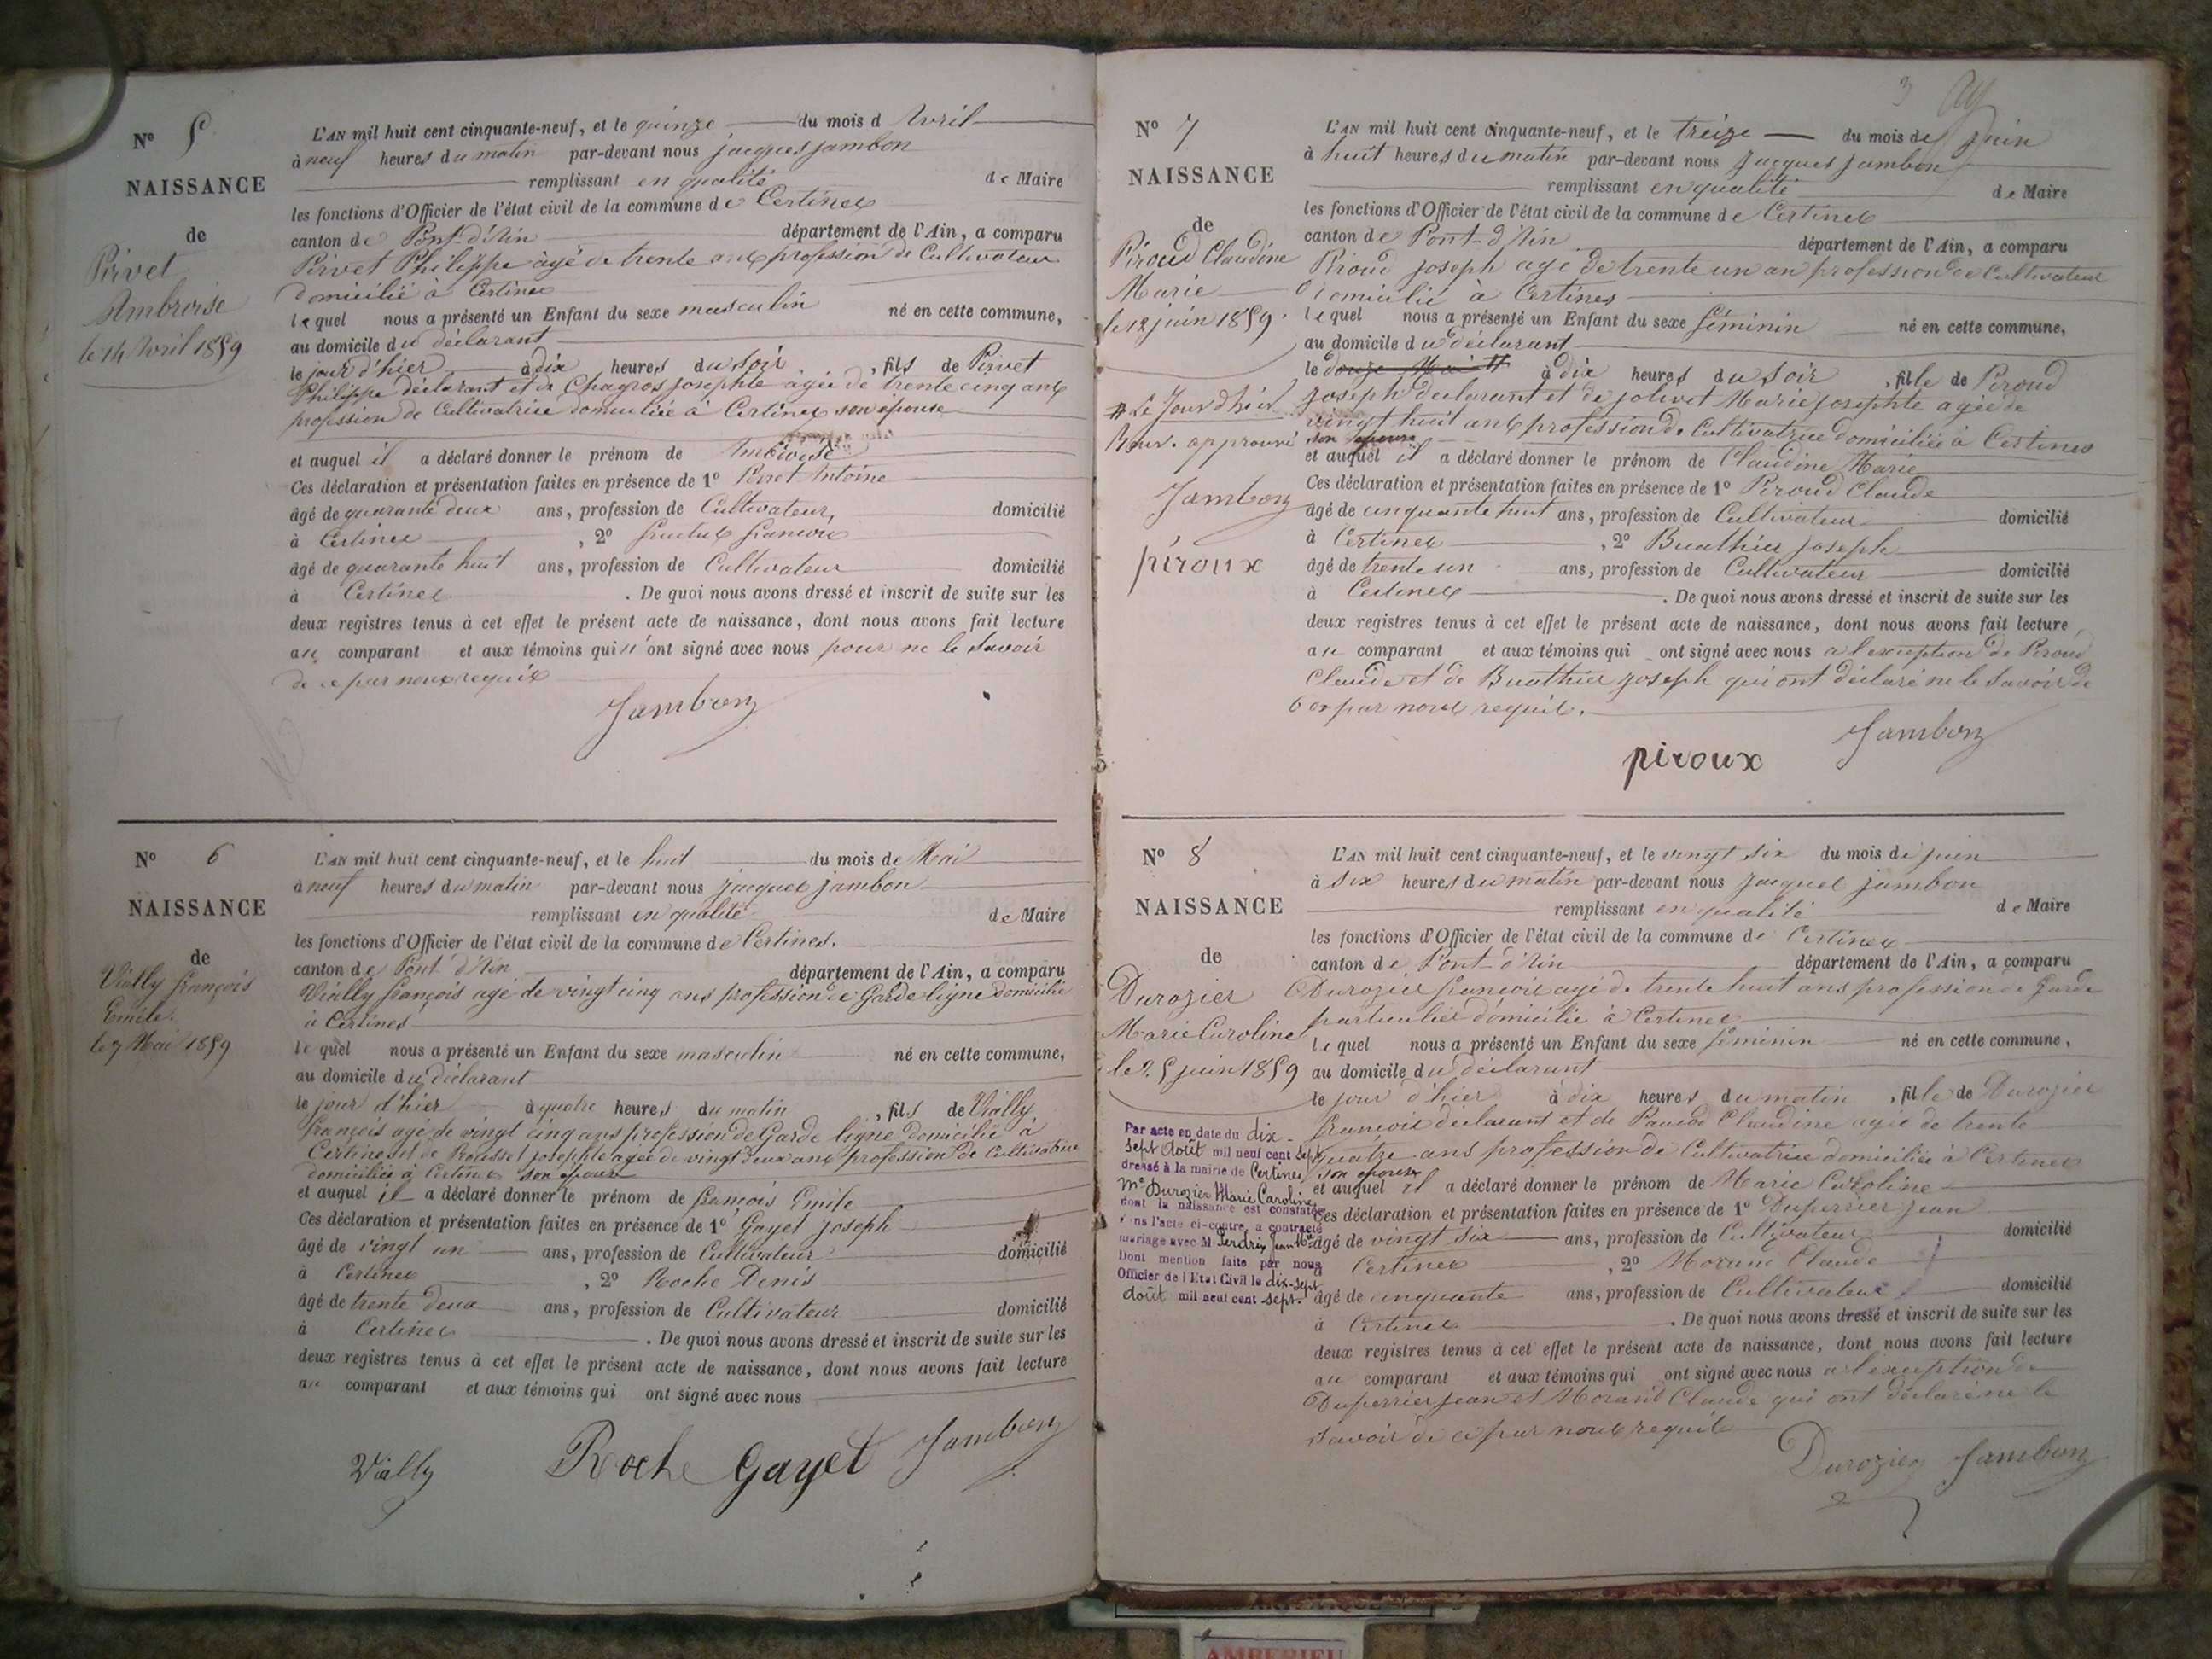 N° 5
NAISSANCE
de
Pirvet
Ambroise
le 14 Avril 1859
L'AN mil huit cent cinquante-neuf, et le quinze du mois d Avril
à neuf heures du matin par-devant nous jacques jambon
remplissant en qualité de Maire
les fonctions d'Officier de l'état civil de la commune de Certines
canton de Pont-d'Ain département de l'Ain, a comparu
Pirvet Philippe âgé de trente ans profession de Cultivateur
domicilié à Certines
lequel nous a présenté un Enfant du sexe masculin né en cette commune,
au domicile du déclarant
le jour d'hier à dix heures du soir, fils de Pirvet
Philippe déclarant et de Chagros josephte agée de trente cinq ans
profession de Cultivatrice domiciliée à Certines son épouse
et auquel il a déclaré donner le prénom de Ambroise
Ces déclaration et présentation faites en présence de 1° Antoine
âgé de quarante deux ans, profession de Cultivateur, domicilié
à Certines, 2° francois
âgé de quarante huit ans, profession de Cultivateur domicilié
à Certines. De quoi nous avons dressé et inscrit de suite sur les
deux registres tenus à cet effet le présent acte de naissance, dont nous avons fait lecture
au comparant et aux témoins qui n'ont signé avec nous pour ne le savoir
de ce par nous requis
Jambon
N° 6
NAISSANCE
de
Vially françois
Emile.
le 7 Mai 1859
L'AN mil huit cent cinquante-neuf, et le huit du mois de Mai
à neuf heures du matin par-devant nous jacques jambon
remplissant en qualité de Maire
les fonctions d'Officier de l'état civil de la commune de Certines.
canton de Pont d'Ain département de l'Ain, a comparu
Vially françois agé de vingt cinq ans profession de Garde ligne domicilié
à Certines
lequel nous a présenté un Enfant du sexe masculin né en cette commune,
au domicile du déclarant
le jour d'hier à quatre heures du matin, fils de Vially
françois agé de vingt cinq ans profession de Garde ligne domicilié à
Certines et de Rousset josephte agée de vingt deux ans profession de Cultivatrice
domiciliée à Certines son épouse
et auquel il a déclaré donner le prénom de françois Emile
Ces déclaration et présentation faites en présence de 1° Gayet joseph
âgé de vingt un ans, profession de Cultivateur domicilié
à Certines, 2° Roche Denis
âgé de trente deux ans, profession de Cultivateur domicilié
à Certines. De quoi nous avons dressé et inscrit de suite sur les
deux registres tenus à cet effet le présent acte de naissance, dont nous avons fait lecture
au comparant et aux témoins qui ont signé avec nous
Vially Roche Gayet Jambon
3
N° 7
NAISSANCE
de
Piroud Claudine
Marie
le 12 juin 1859.
# Le Jour d'hier
Rouv. approuvé
Jambon
piroux
L'AN mil huit cent cinquante-neuf, et le treize du mois de Juin
à huit heures du matin par-devant nous Jacques Jambon
remplissant en qualité de Maire
les fonctions d'Officier de l'état civil de la commune de Certines
canton de Pont-d'Ain département de l'Ain, a comparu
Piroud joseph agé de trente un an profession de Cultivateur
domicilié à Certines
lequel nous a présenté un Enfant du sexe féminin né en cette commune,
au domicile du déclarant
le douze # à dix heures du soir, fille de Piroud
joseph declarant et de jolivet Marie josephte agée de
vingt huit ans profession de Cultivatrice domiciliée à Certines
son épouse
et auquel il a déclaré donner le prénom de Claudine Marie
Ces déclaration et présentation faites en présence de 1° Piroud Claude
âgé de cinquante huit ans, profession de Cultivateur domicilié
à Certines, 2° Buathier joseph
âgé de trente un ans, profession de Cultivateur domicilié
à Certines. De quoi nous avons dressé et inscrit de suite sur les
deux registres tenus à cet effet le présent acte de naissance, dont nous avons fait lecture
au comparant et aux témoins qui ont signé avec nous a l'exception de Piroud
Claude et de Buathier joseph qui ont déclaré ne le savoir de
ce par nous requis.
Jambon
piroux
N° 8
NAISSANCE
de
Durozier
Marie Caroline
le 25 juin 1859
Par acte en date du dix-
sept Août mil neuf cent sept
dressé à la mairie de Certines
Me Durozier Marie Caroline
dont la naissance est constatée
dans l'acte ci-contre, a contracté
mariage avec M Perdrix Jean Me
Dont mention faite par nous
Officier de l'Etat Civil le dix-sept
août mil neuf cent sept.
L'AN mil huit cent cinquante-neuf, et le vingt six du mois de juin
à six heures du matin par-devant nous Jacques jambon
remplissant en qualité de Maire
les fonctions d'Officier de l'état civil de la commune de Certines
canton de Pont-d'Ain département de l'Ain, a comparu
Durozier francois agé de trente huit ans profession de Garde
particulier domicilié à Certines
lequel nous a présenté un Enfant du sexe féminin né en cette commune,
au domicile du déclarant
le jour d'hier à dix heures du matin, fille de Durozier
francois déclarant et de Claudine agée de trente
quatre ans profession de Cultivatrice domiciliée à Certines
son épouse
et auquel il a déclaré donner le prénom de Marie Caroline
Ces déclaration et présentation faites en présence de 1° Duperrier jean
âgé de vingt six ans, profession de Cultivateur domicilié
à Certines, 2° Morand Claude
âgé de cinquante ans, profession de Cultivateur domicilié
à Certines. De quoi nous avons dressé et inscrit de suite sur les
deux registres tenus à cet effet le présent acte de naissance, dont nous avons fait lecture
au comparant et aux témoins qui ont signé avec nous a l'exception de
Duperrier jean et Morand Claude qui ont déclaré ne le
savoir de ce par nous requis
Durozier Jambon
AMBERIEU